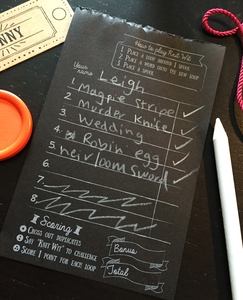 NNY
How to play Knit Wit
1 Place a loop around 1 spool
2 Place a word onto the new loop
3 Place a spool
Your name Leigh
1. Magpie Stripe ✓
2. Murder Knife ✓
3. Wedding ✓
4. Robin egg ✓
5. heirloom sword ✓
6.
7.
8.
Scoring
1 Cross out duplicates
2 Say "Knit Wit" to challenge
3 Score 1 point for each loop
Bonus
Total